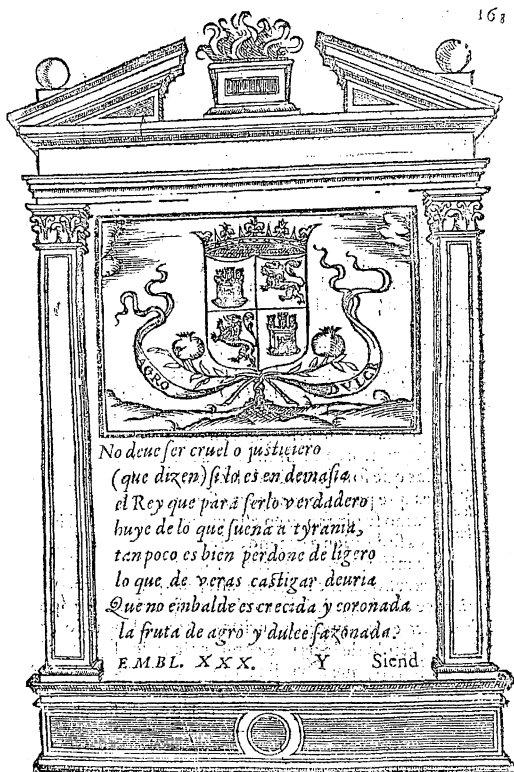 168
AGRO DVLCE
No deue ſer cruel o juſticiero
(que dizen) ſi lo es en demaſia
el Rey que para ſerlo verdadero
huye de lo que ſuena a tyrania,
tan poco es bien perdone de ligero
lo que de veras caſtigar deuria
Que no embalde es crecida y coronada
la fruta de agro y dulce ſazonada.
EMBL. XXX. Y Siend